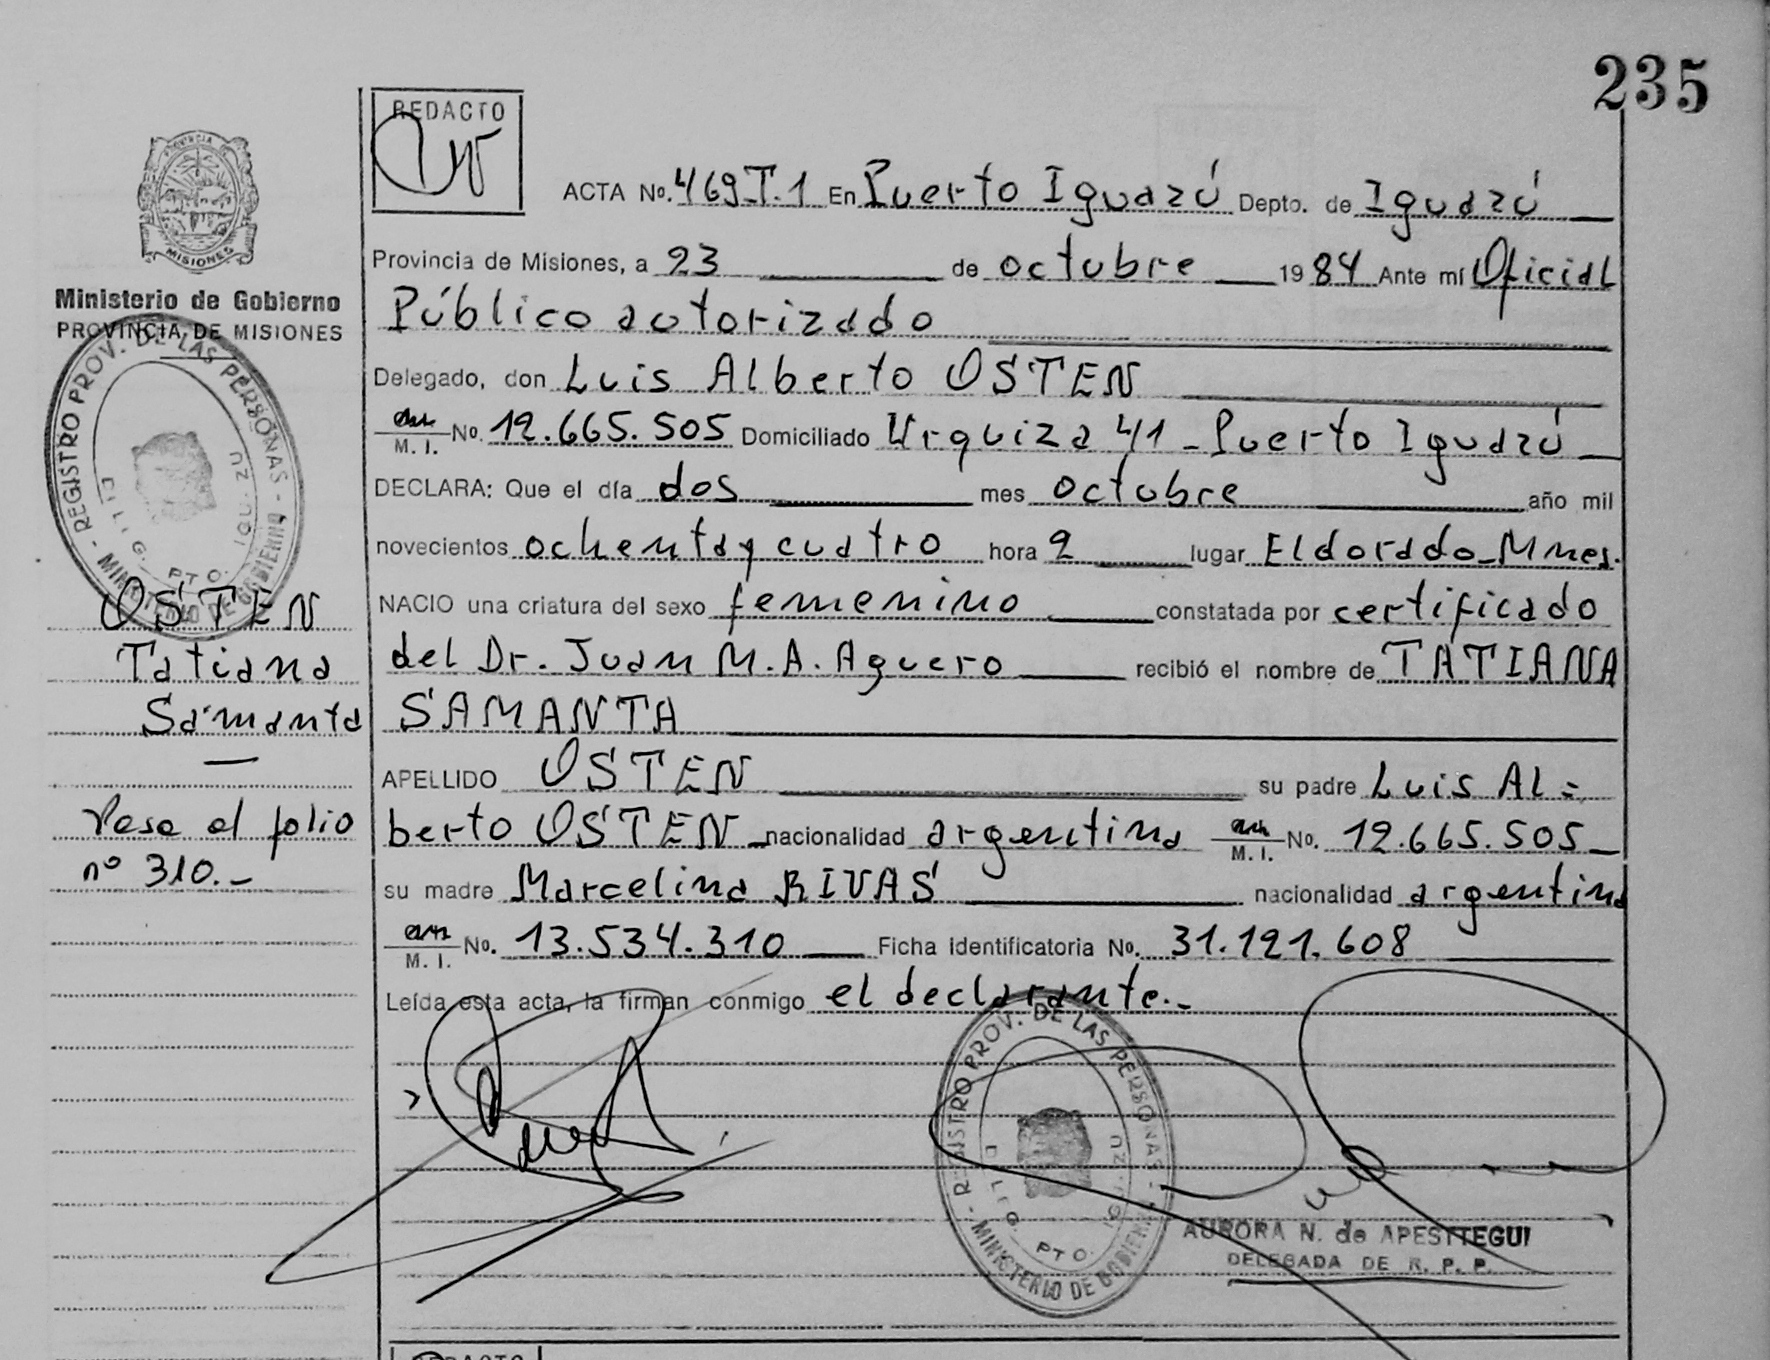 235
REDACTO
PROVINCIA DE
MISIONES
Ministerio de Gobierno
PROVINCIA DE MISIONES
REGISTRO PROV. DE LAS PERSONAS - MINISTERIO DE GOBIERNO -
PTO. IGUAZU
OSTEN
Tatiana
Samanta
—
Vease el folio
nº 310.-
ACTA No. 469.T.1 En Puerto Iguazú Depto. de Iguazú
Provincia de Misiones, a 23 de octubre 1984 Ante mí Oficial
Público autorizado
Delegado, don Luis Alberto OSTEN
M. I. No. 12.665.505 Domiciliado Urquiza 41 - Puerto Iguazú
DECLARA: Que el día dos mes octubre año mil
novecientos ochenta y cuatro hora 2 lugar Eldorado - Mnes.
NACIO una criatura del sexo femenino constatada por certificado
del Dr. Juan M. A. Aguero recibió el nombre de TATIANA
SAMANTA
APELLIDO OSTEN su padre Luis Al=
berto OSTEN nacionalidad argentina M. I. No. 12.665.505
su madre Marcelina RIVAS nacionalidad argentina
M. I. No. 13.534.310 Ficha identificatoria No. 31.121.608
Leída esta acta, la firman conmigo el declarante.-
REGISTRO PROV. DE LAS PERSONAS - MINISTERIO DE GOBIERNO -
PTO.
AURORA N. de APESTTEGUI
DELEGADA DE R. P. P.
REDACTO